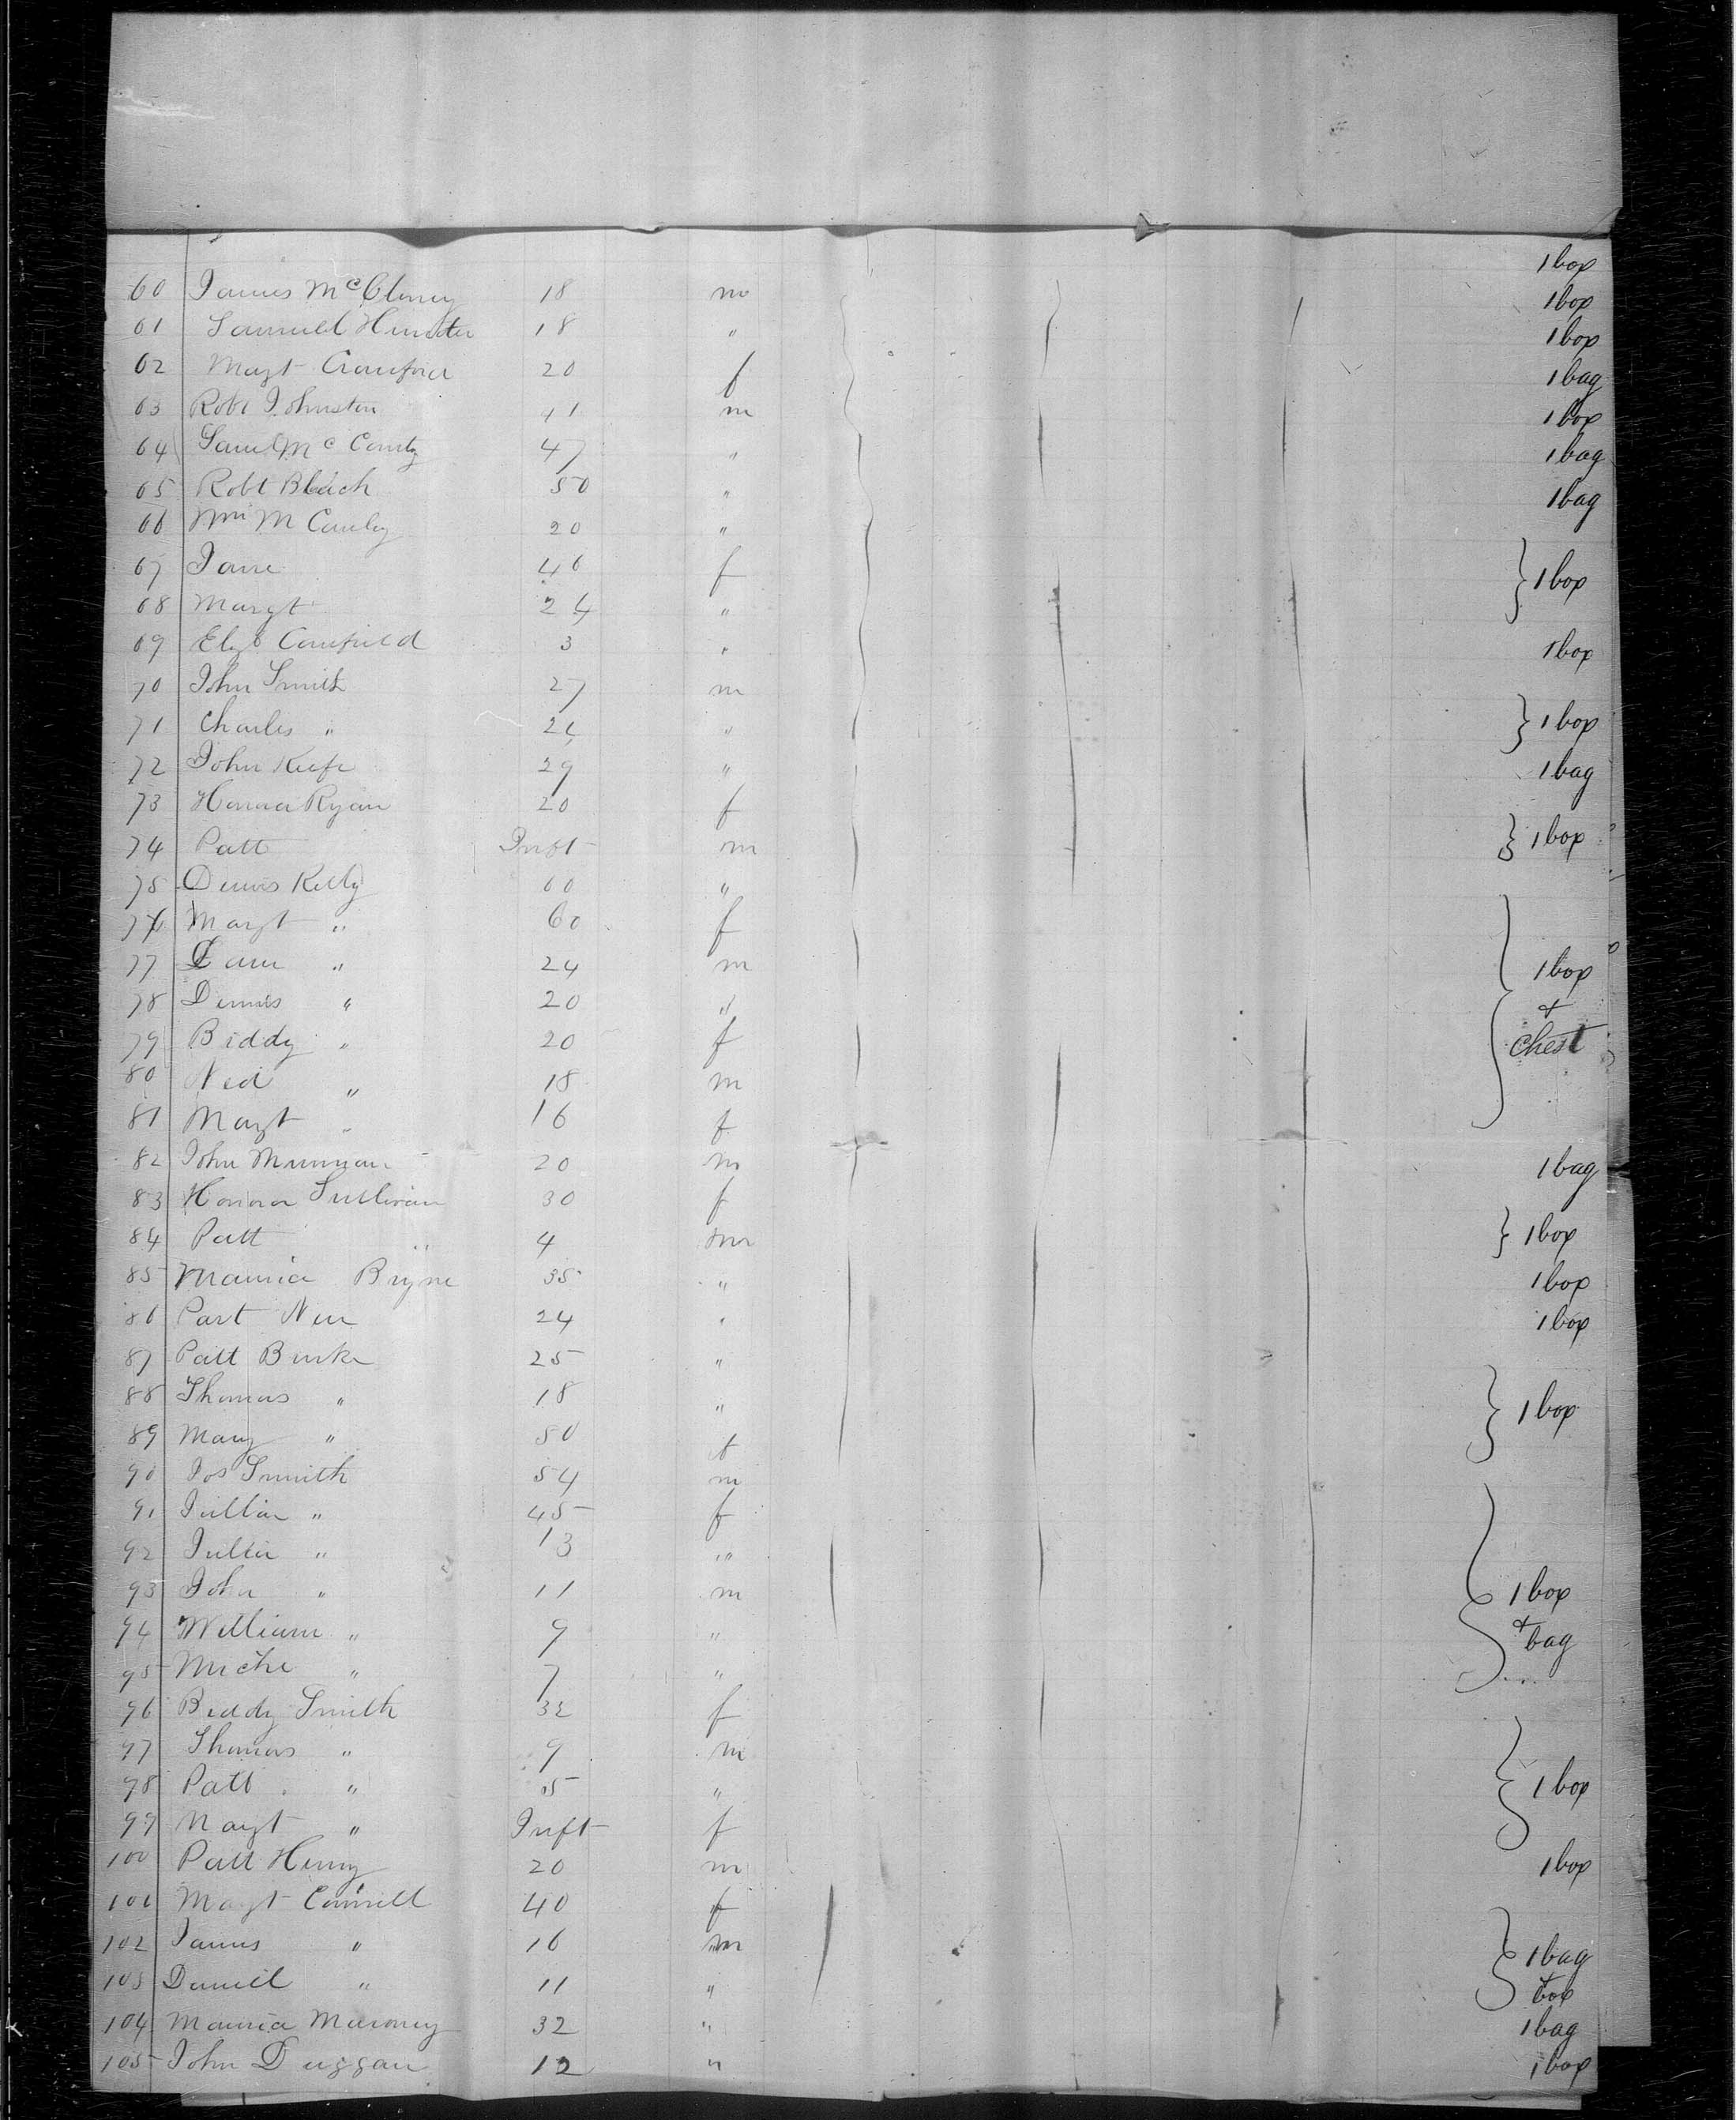 1 box
60 James McClurey 18 m 1 box
61 Samuel Hunter 18 " 1 box
62 Magt Crawford 20 f 1 bag
63 Robt Johnston 41 m 1 box
64 Saml Mc Canty 47 " 1 bag
65 Robt Black 50 " 1 bag
66 Wm M Cauley 20 "
67 Jane 46 f } 1 box
68 Margt 24 "
69 Elyb Caufield 3 " 1 box
70 John Smith 27 m
71 Charles " 24 " } 1 box
72 John Keefe 29 " 1 bag
73 Honora Ryan 20 f
74 Patt Inft m } 1 box
75 Dennis Kelly 60 "
76 Magt " 60 f
77 Dam " 24 m } 1 box
78 Dennis " 20 " &
79 Biddy " 20 f chest
80 Ned " 18 m
81 Magt " 16 f
82 John Munnan 20 m 1 bag
83 Honora Sullivan 30 f
84 Patt " 4 m } 1 box
85 Maurice Bryne 35 " 1 box
86 Part Neu 24 " 1 box
87 Patt Burke 25 "
88 Thomas " 18 " } 1 box
89 Mary " 50 f
90 Jos Smith 54 m
91 Jullia " 45 f
92 Jullia " 13 "
93 John " 11 m } 1 box
94 William " 9 " & bag
95 Miche " 7 "
96 Biddy Smith 32 f
97 Thomas " 9 m
98 Patt " 5 " } 1 box
99 Magt " Inft f
100 Patt Henry 20 m 1 box
101 Magt Connell 40 f
102 James " 16 m } 1 bag
103 Daniell " 11 " & box
104 Maurice Maroney 32 " 1 bag
105 John Duggan 12 " 1 box